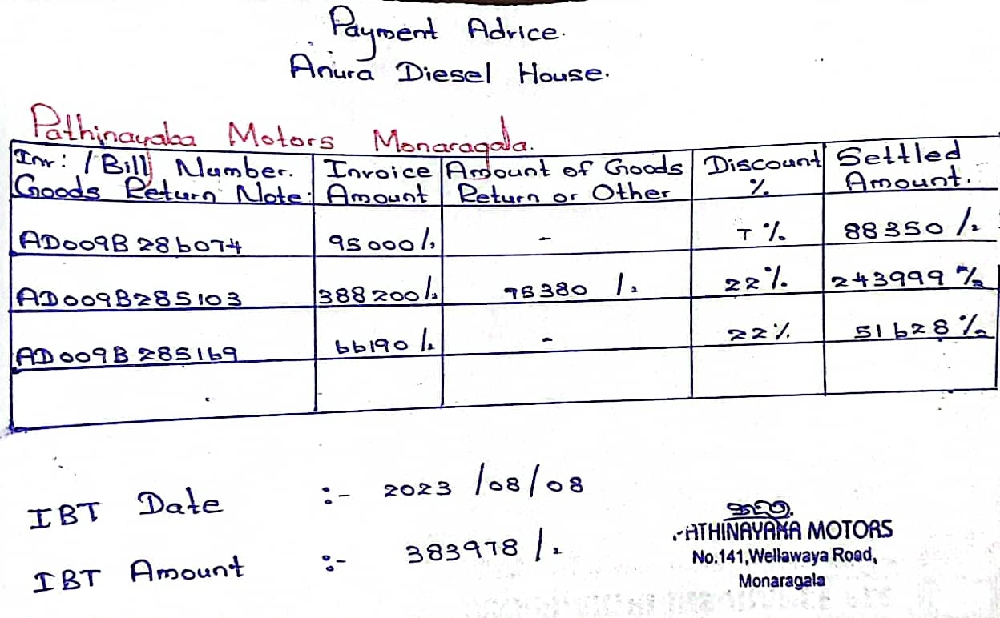 Payment Advice.
Anura Diesel House.
Pathinayaka Motors Monaragala.
Inv: / Bill Number. Invoice Amount of Goods Discount Settled
Goods Return Note: Amount Return or Other % Amount.
AD009B286074 95000/= - 7% 88350/=
AD009B285103 388200/= 75380/= 22% 243999 %
AD009B285169 66190/= - 22% 51628 %
IBT Date :- 2023/08/08
IBT Amount :- 383978/=
PATHINAYAKA MOTORS
No.141,Wellawaya Road,
Monaragala